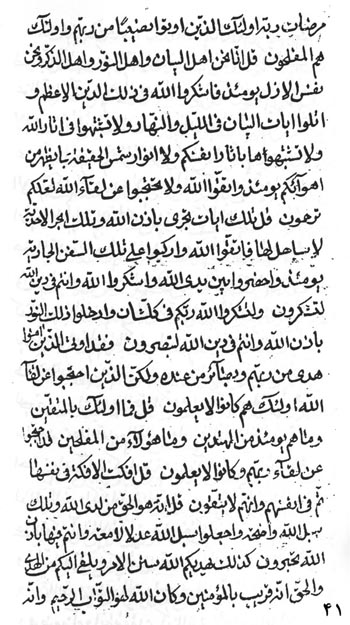 مرضات ربه اولئك الذين اوتوا نصيبا من ربهم واولئك
هم المفلحون قل انا نحن اهل البيان واهل النور واهل الذكر ونحن
نفس الازل يومئذ فاشكروا الله في ذلك الدين الاعظم و
اتلوا ايات البيان في الليل والنهار ولا تشتبهوا في اثار الله
ولا تشتبهوها باثار انفسكم ولا انوار شمس الحقيقة بما يظهر من
اهوائكم يومئذ واتقوا الله ولا تحتجبوا عن لقاء الله لعلكم
ترحمون قل تلك ايات تجرى باذن الله وتلك ابحر الاحدية
لا ساحل لها فاتقوا الله واركبوا على تلك السفن الجارية
يومئذ واحضروا بين يدى الله واشكروا الله وانتم في دين الله
لتشكرون ولتشكروا الله ربكم في كل شأن وادخلوا ذلك النور
باذن الله وانتم في دين الله لتصرون فقد اوتى الذين امنوا
هدى من ربهم وبصائر من عنده ولكن الذين احتجبوا عن لقاء
الله اولئك هم كانوا لا يعلمون قل فما اولئك بالمتقين
وما هم يومئذ من المهتدين وما هؤلاء من المفلحين لقد احتجبوا
عن لقاء ربهم وكانوا لا يعلمون قل افكت الافكة في نفسها
ثم في انفسهم وانهم لا يتقون قل انه هو الحق من لدى الله وتلك
سبل الله واضحة واجعلوا سبل الله علالا معة وانتم فيها باذن
الله تحبرون كذلك يهديكم الله سنن الامر ويلقى اليكم من الهدى
والحق انه قريب بالمؤمنين وكان الله لهو التواب الرحيم وانه
٤١